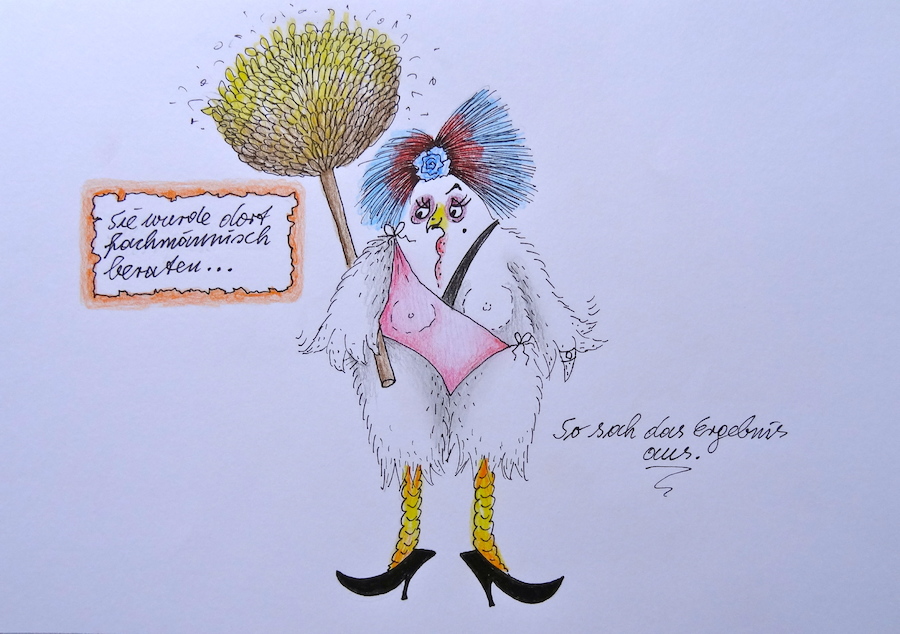 Sie wurde dort
fachmännisch
beraten...
So sah das Ergebnis
aus.